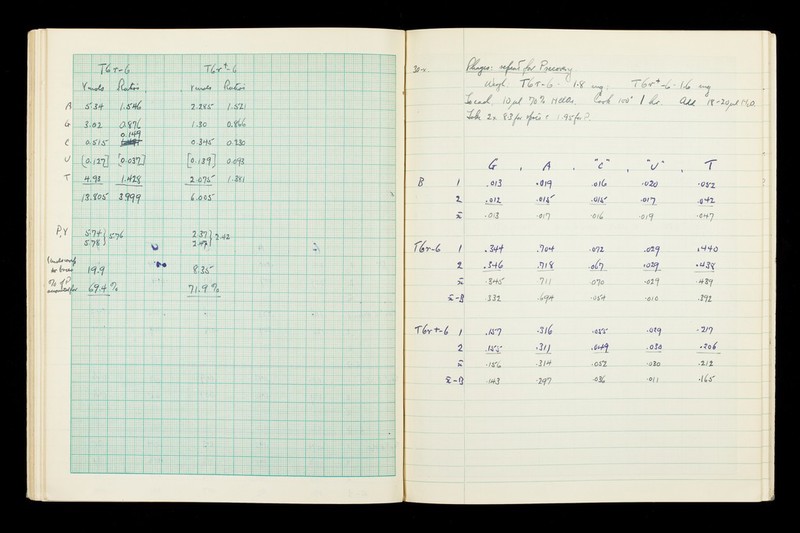 T6r-6 T6r+-6
γ mols Ratio γ mols Ratio
A 5.34 1.546 2.285 1.521
G 3.02 0.876 1.30 0.866
0.149
C 0.515 0.345 0.230
U [0.127] [0.037] [0.139] 0.093
T 4.93 1.428 2.075 1.381
13.805 3.999 6.005
P,γ 5.74 } 5.76 2.37 } 2.42
5.78 2.47
19.9 8.35
% of P accounted for 69.4 % 71.9 %
Phages: repeat for P recovery
Weigh. T6r-6 - 1.8 mg; T6r+-6 - 1.6 mg
To each, 10 μl 70% HClO4. 100° 1 hr. Add
Take 2x for P.
G , A , "C" , "U" , T
B 1 .013 .019 .016 .020 .052
2 .012 .015 .015 .017 .042
x̄ .013 .017 .016 .019 .047
T6r-6 1 .344 .704 .072 .029 .440
2 .346 .718 .067 .029 .438
x̄ .345 .711 .070 .029 .439
x̄-B .332 .694 .054 .010 .392
T6r+-6 1 .157 .316 .055 .029 .217
2 .155 .311 .049 .030 .206
x̄ .156 .314 .052 .030 .212
x̄-B .143 .297 .036 .011 .165